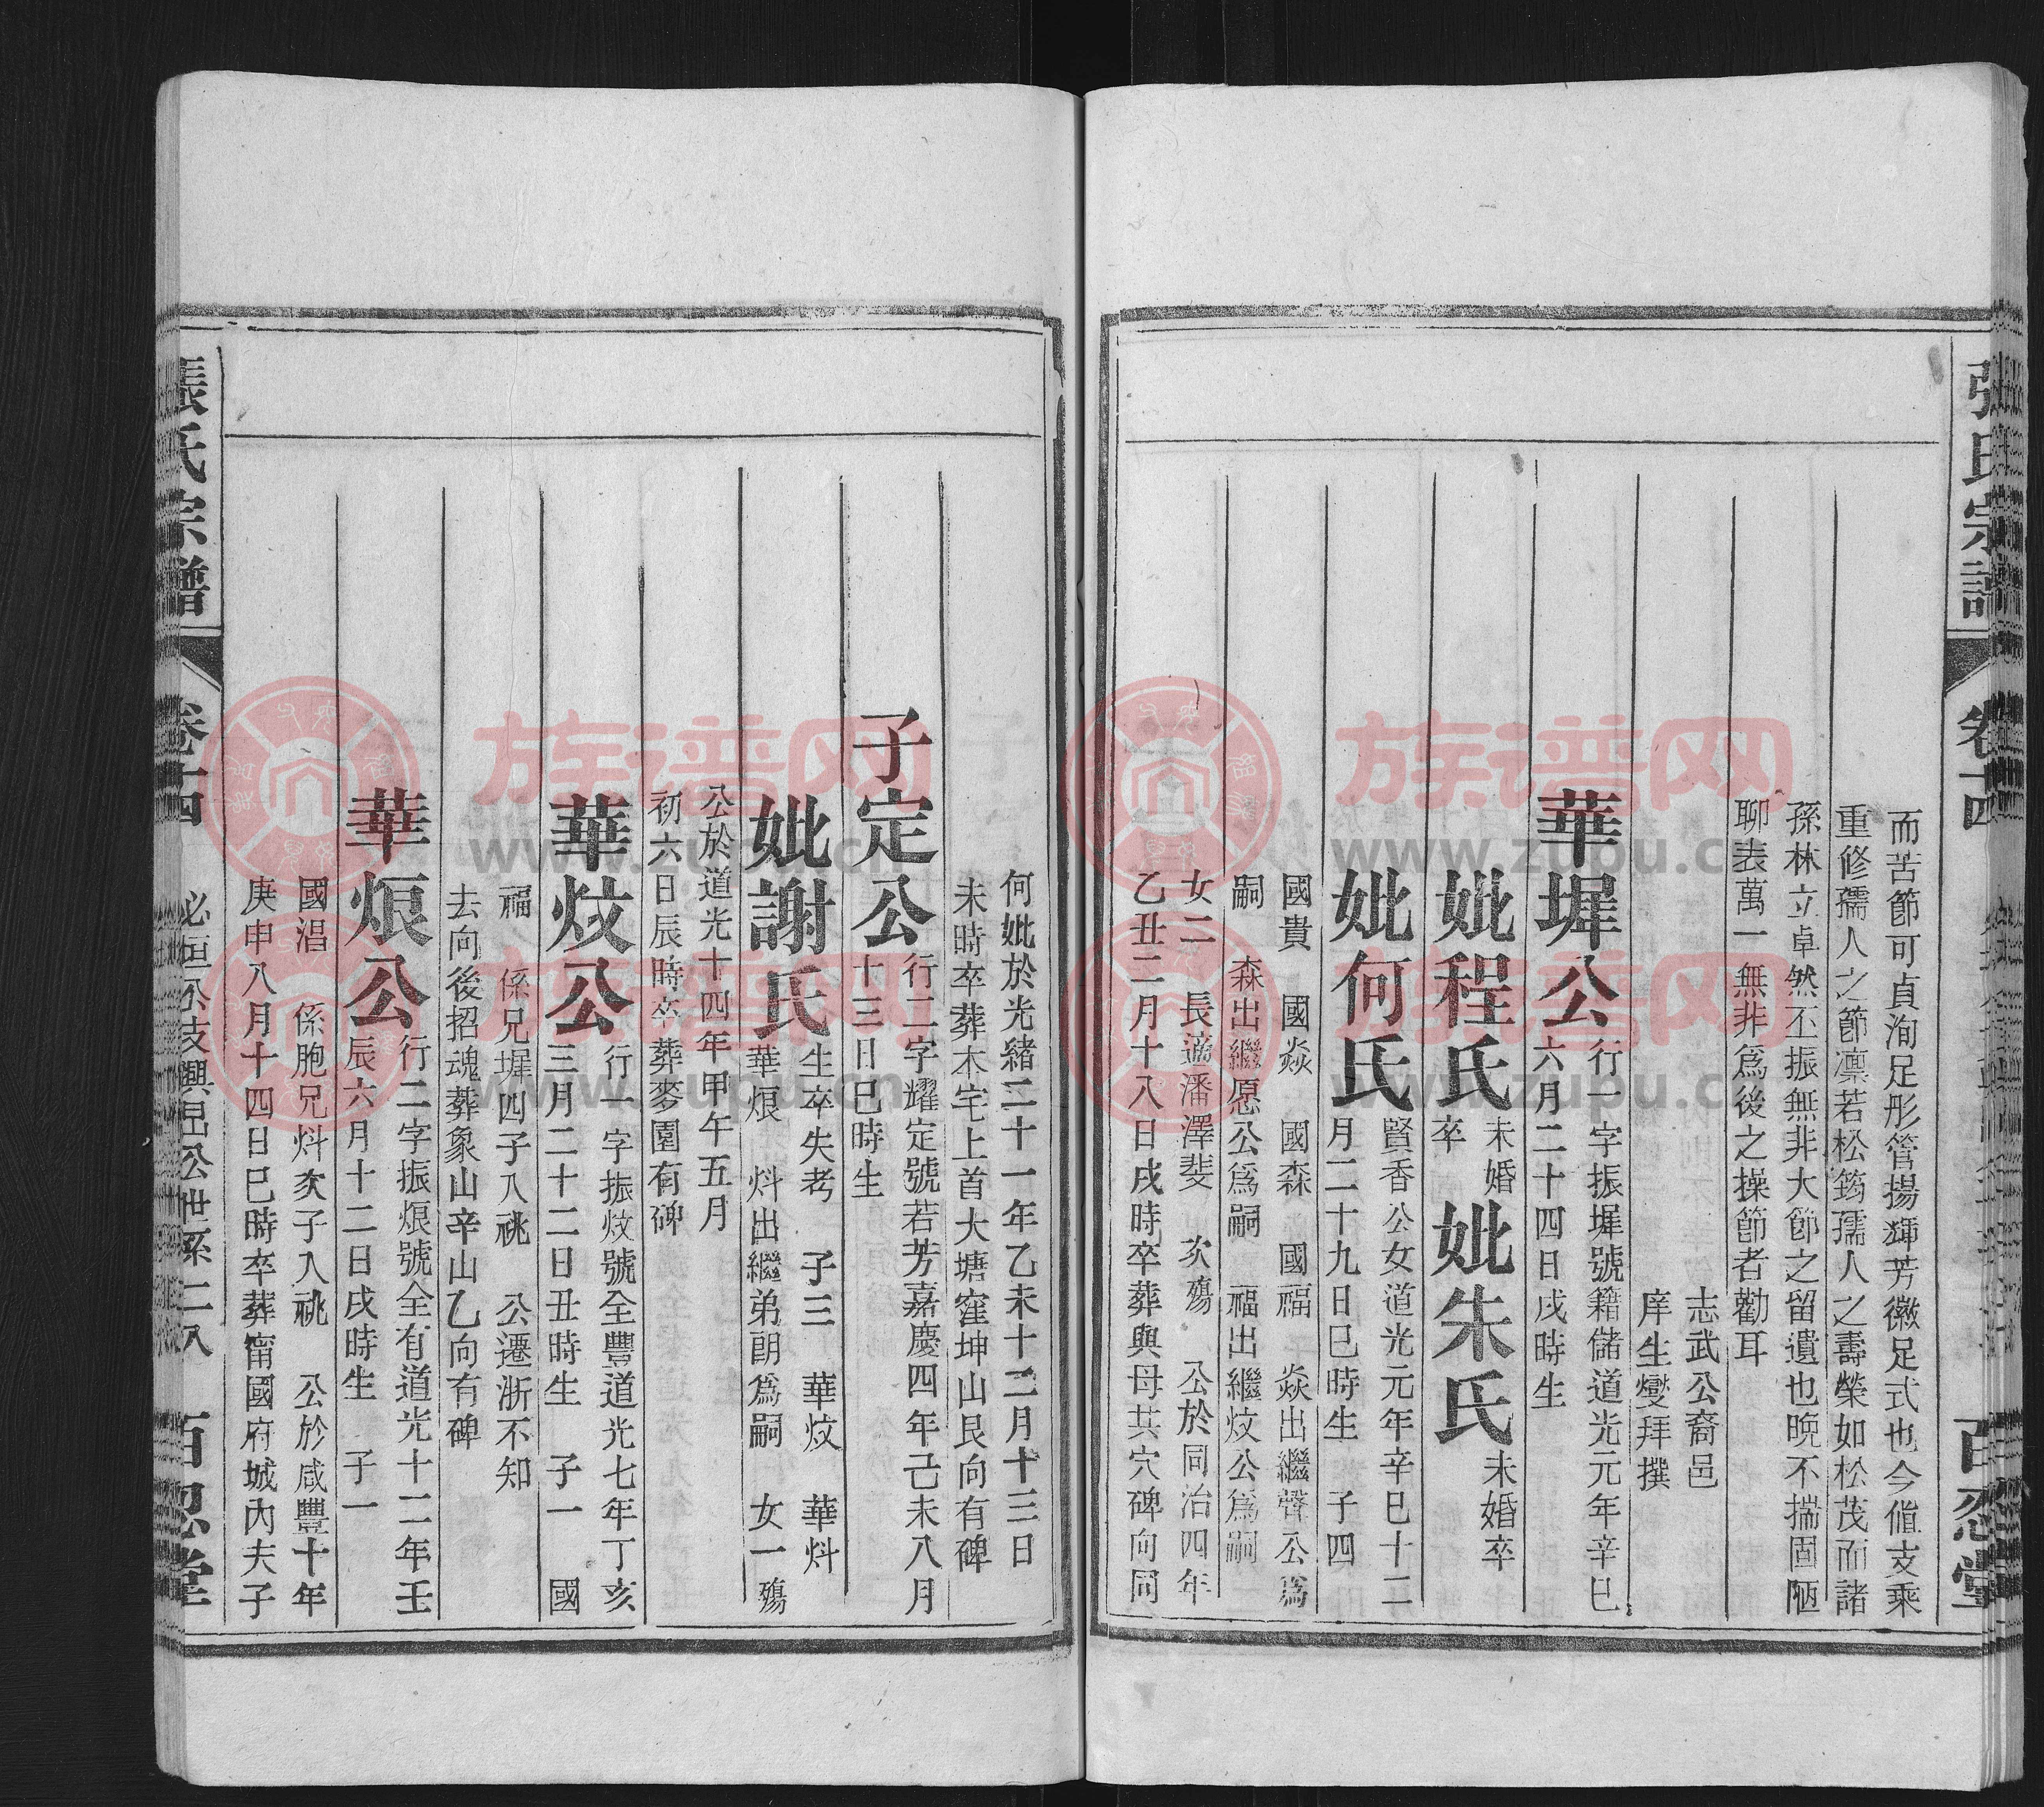 張氏宗譜
卷十四
百忍堂
而苦節可貞洵足彤管揚輝芳徽足式也今值支乘
重修孺人之節凛若松筠孺人之壽榮如松茂而諸
孫林立卓然丕振無非大節之留遺也晩不揣固陋
聊表萬一無非爲後之操節者勸耳
志武公裔邑
庠生燮拜撰
華墀公
行一字振墀號籍儲道光元年辛巳
六月二十四日戌時生
妣程氏
未婚
卒
妣朱氏
未婚卒
妣何氏
賢香公女道光元年辛巳十二
月二十九日巳時生 子四
國貴 國焱 國森 國福 焱出繼聲公爲
嗣 森出繼愿公爲嗣 福出繼炆公爲嗣
女二 長適潘澤斐 次殤 公於同治四年
乙丑二月十八日戌時卒葬與母共穴碑向同
何妣於光緒二十一年乙未十二月十三日
未時卒葬本宅上首大塘窪坤山艮向有碑
子定公
行二字耀定號若芳嘉慶四年己未八月
十三日巳時生
妣謝氏
生卒失考 子三 華炆 華炓
華烺 炓出繼弟朗爲嗣 女一殤
公於道光十四年甲午五月
初六日辰時卒葬麥園有碑
華炆公
行一字振炆號全豐道光七年丁亥
三月二十二日丑時生 子一 國
福 係兄墀四子入祧 公遷浙不知
去向後招魂葬象山辛山乙向有碑
華烺公
行二字振烺號全有道光十二年壬
辰六月十二日戌時生 子一
國淐 係胞兄炓次子入祧 公於咸豐十年
庚申八月十四日巳時卒葬甯國府城內夫子
張氏宗譜
卷十四
必恒公支興呂公世系二八
百忍堂
族谱网
www.zupu.cn
族谱网
www.zupu.cn
族谱网
www.zupu.cn
族谱网
www.zupu.cn